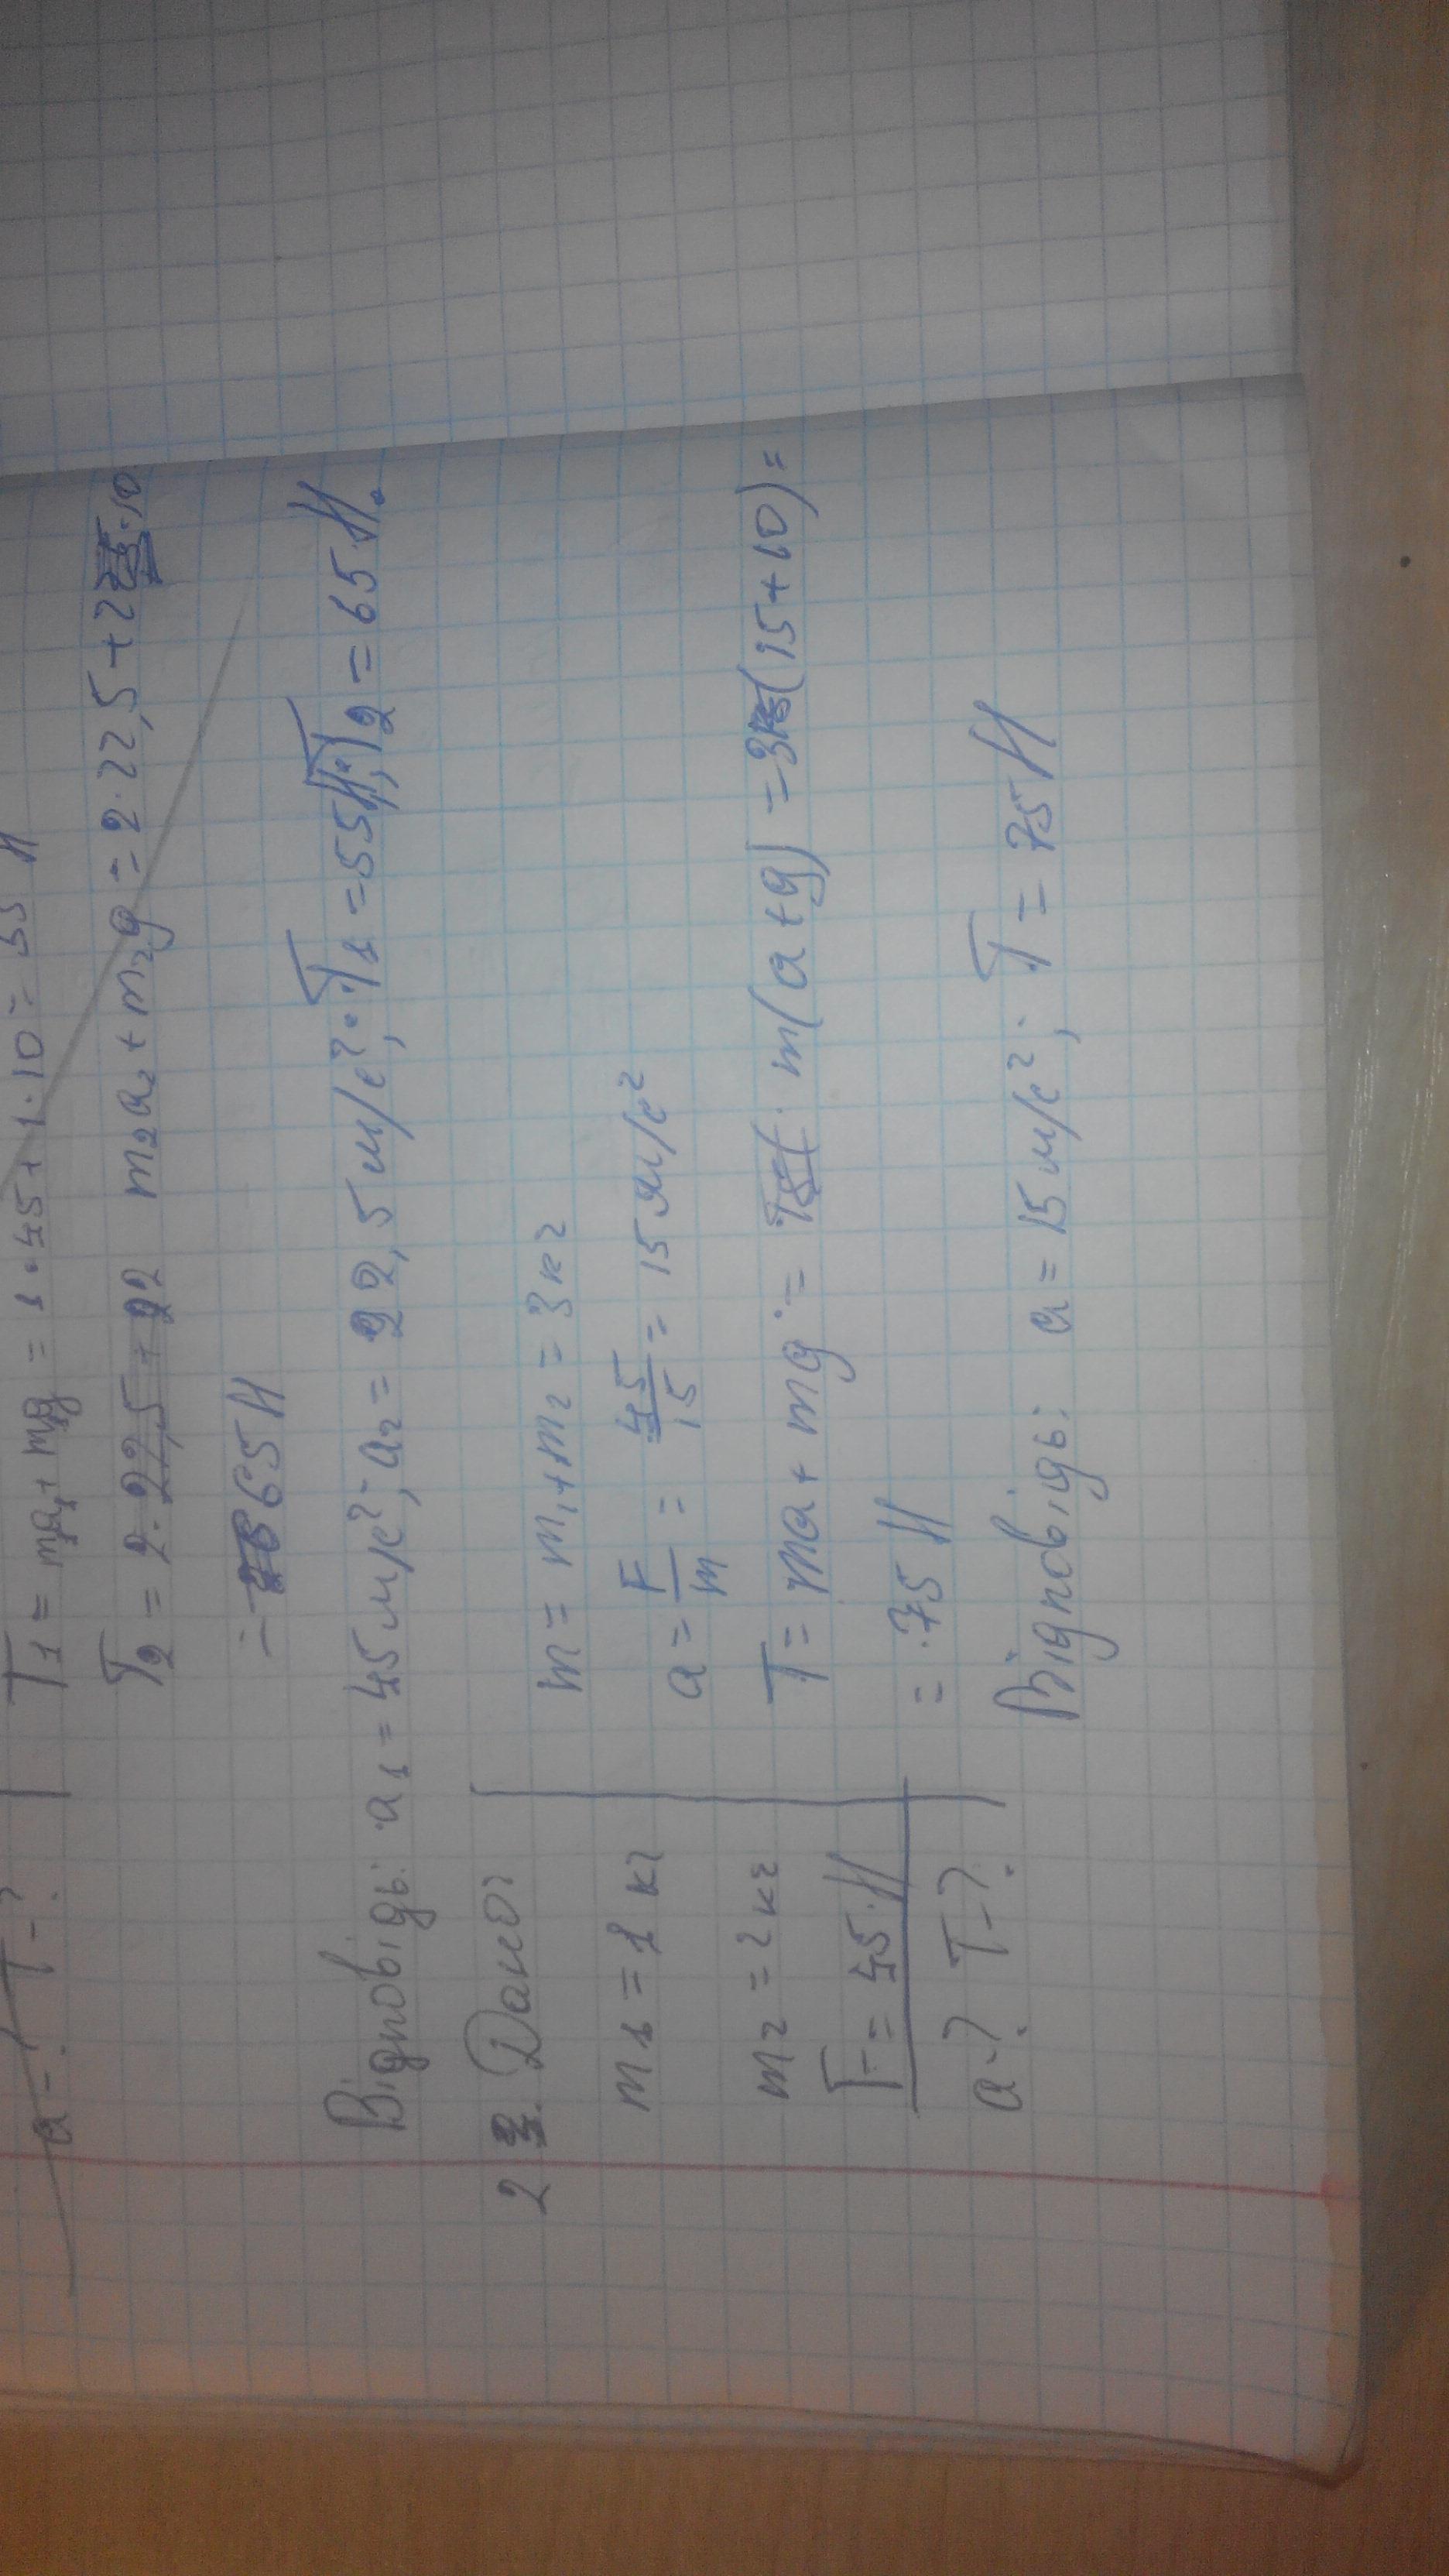 a - ? T - ?
T₁ = m₁a₁ + m₁g = 1 · 45 + 1 · 10 = 55 Н
T₂ = 2 · 22,5 + 22 m₂a₂ + m₂g = 2 · 22,5 + 2 · 10
= 65 Н
Відповідь: a₁ = 45 м/с²; a₂ = 22,5 м/с²; T₁ = 55 Н; T₂ = 65 Н.
2. Дано:
m₁ = 1 кг
m₂ = 2 кг
F = 45 Н
a - ? T - ?
m = m₁ + m₂ = 3 кг
a = F/m = 45/15 = 15 м/с²
T = ma + mg = m(a + g) = 3(15 + 10) =
= 75 Н
Відповідь: a = 15 м/с²; T = 75 Н